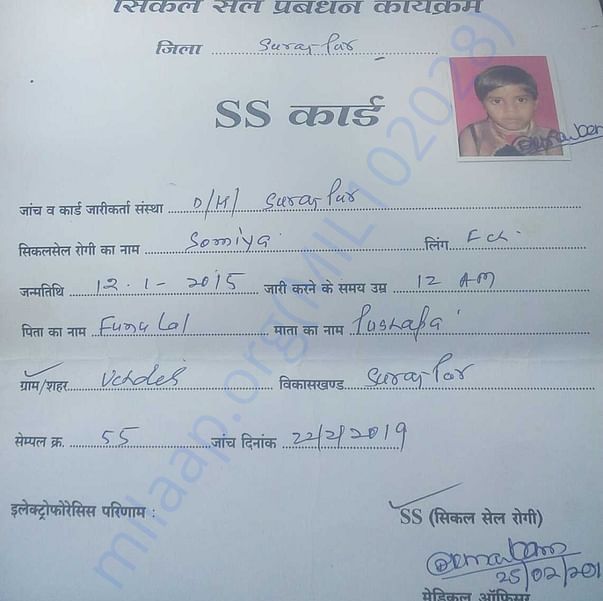 सिकल सेल प्रबंधन कार्यक्रम
जिला Surajpur
SS कार्ड
जांच व कार्ड जारीकर्ता संस्था D/H/ Surajpur
सिकलसेल रोगी का नाम Somiya लिंग Fch.
जन्मतिथि 12.1-2015 जारी करने के समय उम्र 12 AM
पिता का नाम माता का नाम Pushapa
ग्राम/शहर विकासखण्ड Surajpur
सेम्पल क्र. 55 जांच दिनांक 22/2/2019
इलेक्ट्रोफोरेसिस परिणाम :
SS (सिकल सेल रोगी)
25/02/201
मेडिकल ऑफिसर
milaap.org(MIL1020228)